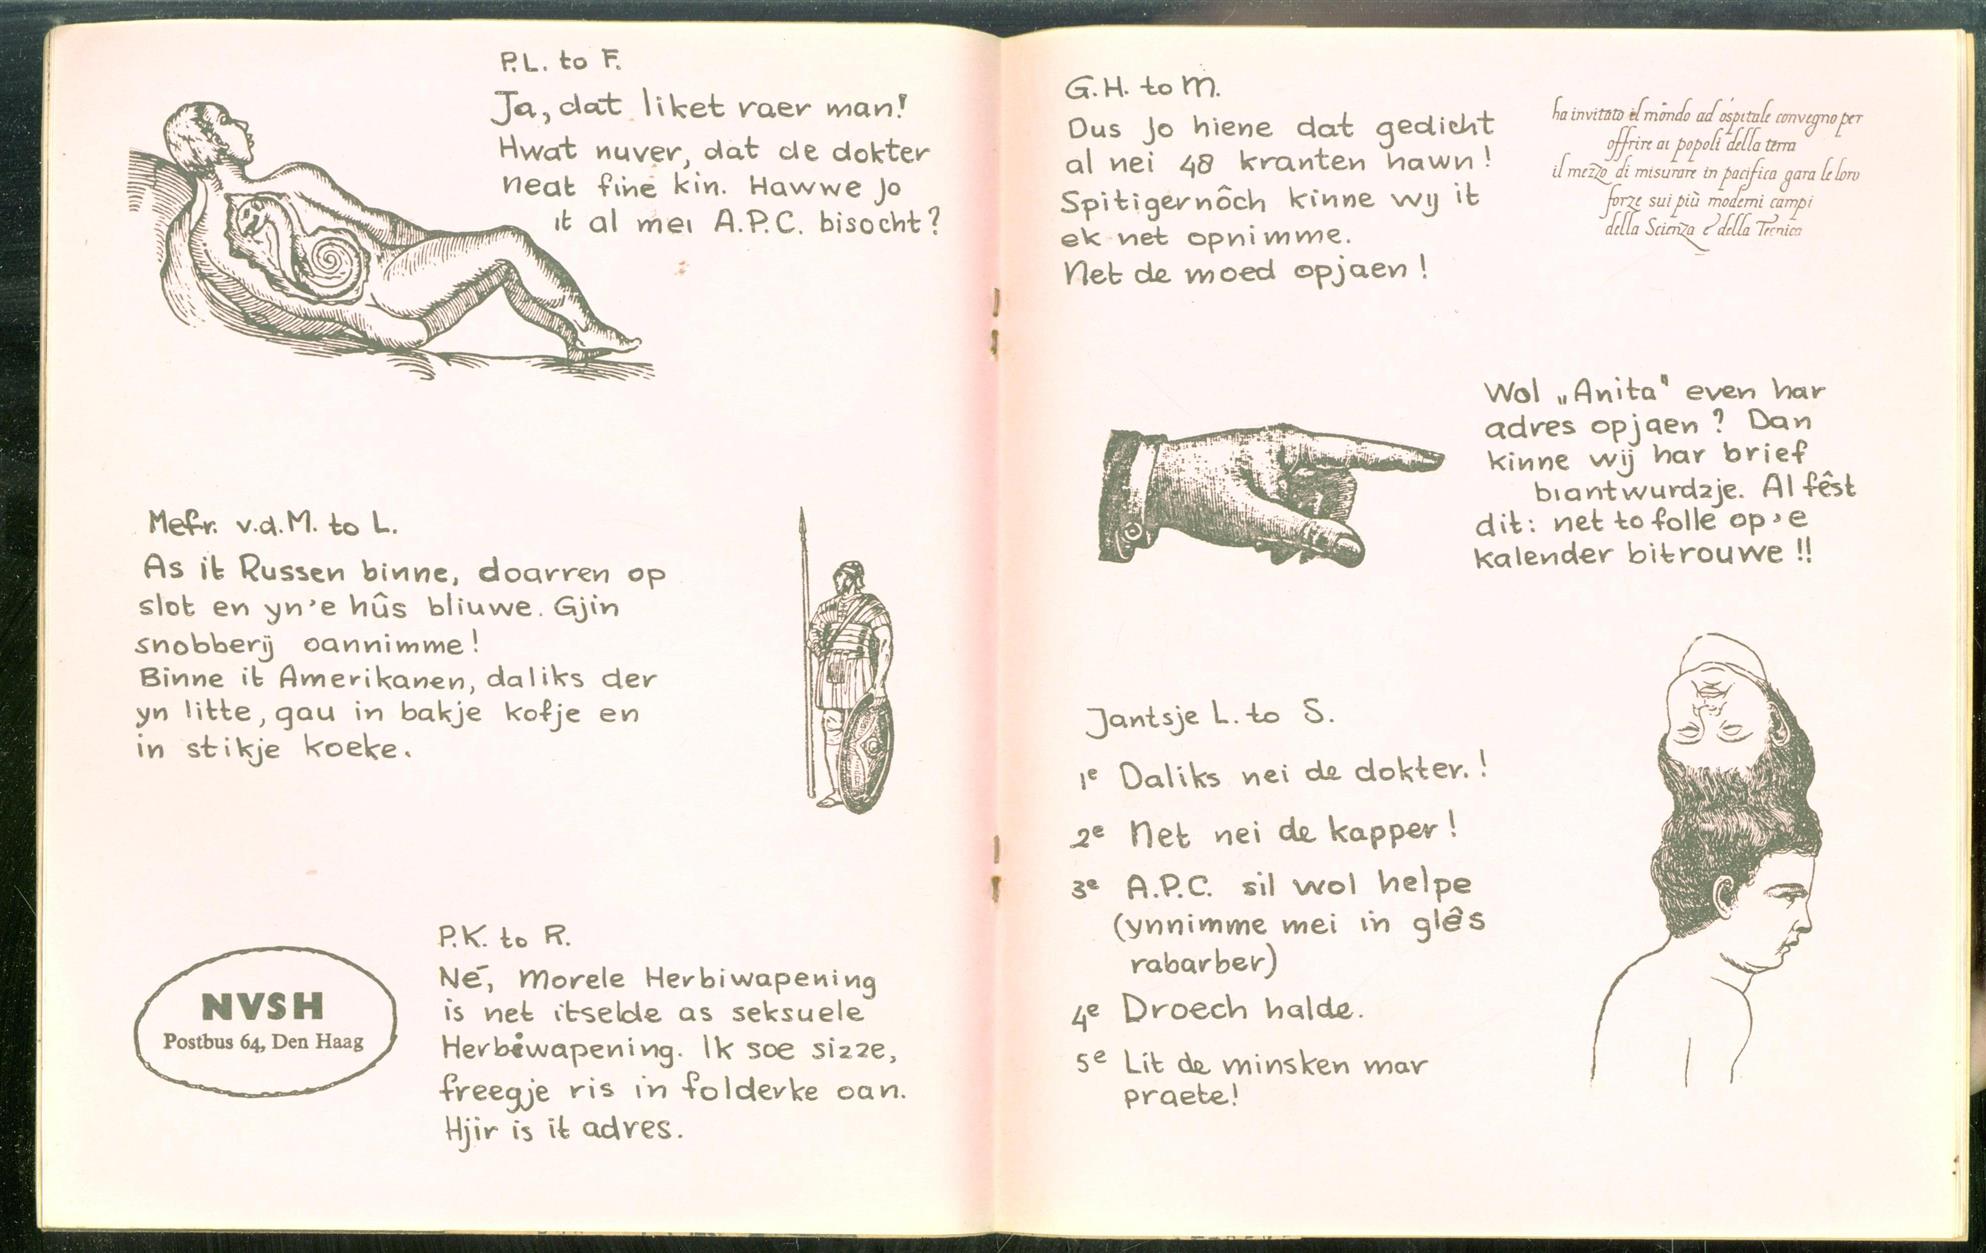 P.L. to F.
Ja, dat liket raer man!
Hwat nuver, dat de dokter
neat fine kin. Hawwe Jo
it al mei A.P.C. bisocht?
Mefr. v.d.M. to L.
As it Russen binne, doarren op
slot en yn'e hûs bliuwe. Gjin
snobberij oannimme!
Binne it Amerikanen, daliks der
yn litte, gau in bakje kofje en
in stikje koeke.
NVSH
Postbus 64, Den Haag
P.K. to R.
Né, Morele Herbiwapening
is net itselde as seksuele
Herbiwapening. Ik soe sizze,
freegje ris in folderke oan.
Hjir is it adres.
G.H. to M.
Dus Jo hiene dat gedicht
al nei 48 kranten hawn!
Spitigernôch kinne wy it
ek net opnimme.
Net de moed opjaen!
ha invitato il mondo ad ospitale convegno per
offrire ai popoli della terra
il mezzo di misurare in pacifica gara le loro
forze sui più moderni campi
della Scienza e della Tecnica
Wol „Anita" even har
adres opjaen? Dan
kinne wij har brief
biantwurdzje. Al fêst
dit: net to folle op 'e
kalender bitrouwe!!
Jantsje L. to S.
1e Daliks nei de dokter.!
2e Net nei de kapper!
3e A.P.C. sil wol helpe
(ynnimme mei in glês
rabarber)
4e Droech halde.
5e Lit de minsken mar
praete!